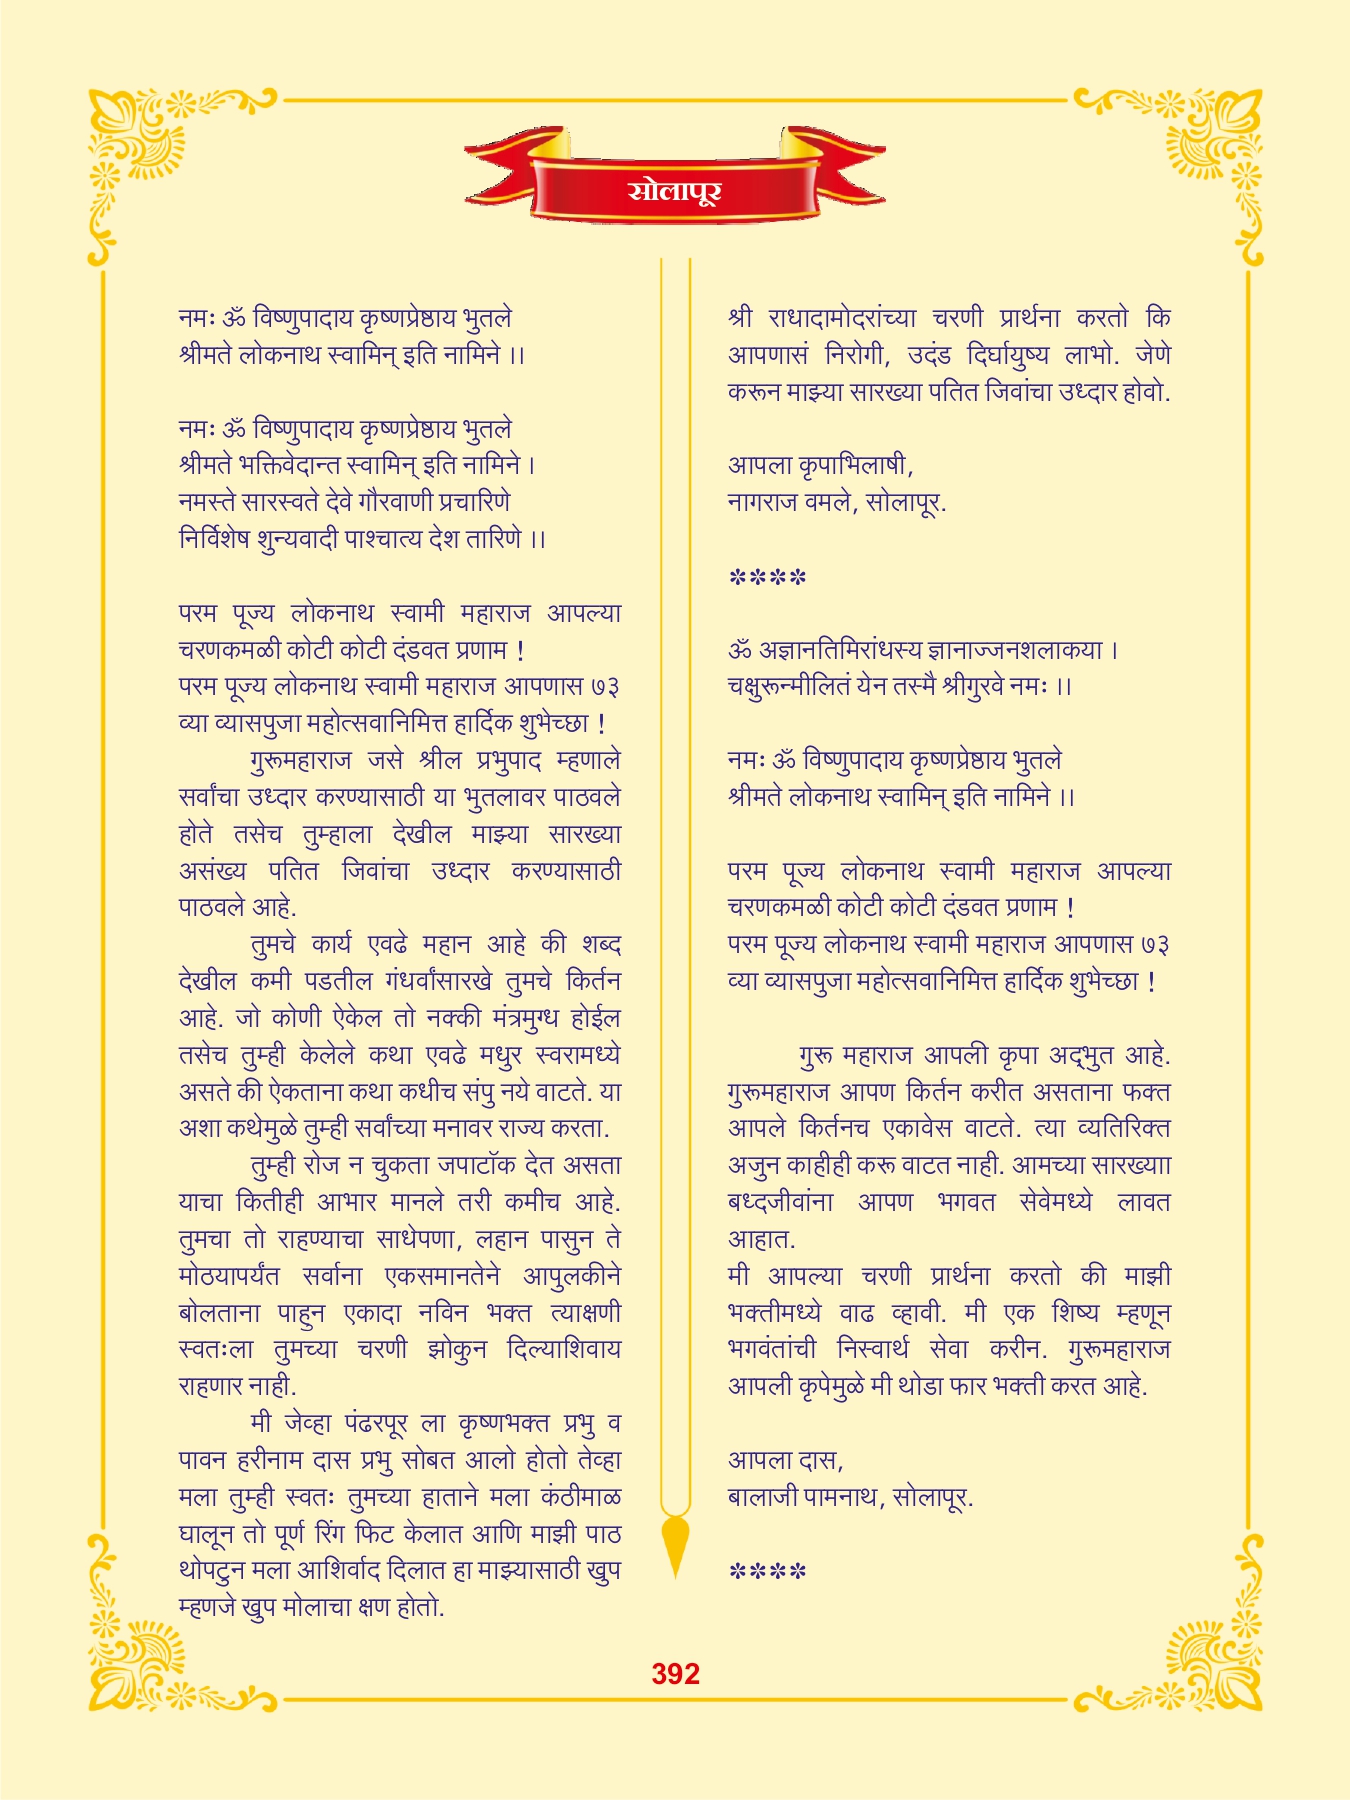 सोलापूर
नमः ॐ विष्णुपादाय कृष्णप्रेष्ठाय भुतले
श्रीमते लोकनाथ स्वामिन् इति नामिने ।।
नमः ॐ विष्णुपादाय कृष्णप्रेष्ठाय भुतले
श्रीमते भक्तिवेदान्त स्वामिन् इति नामिने ।
नमस्ते सारस्वते देवे गौरवाणी प्रचारिणे
निर्विशेष शुन्यवादी पाश्चात्य देश तारिणे ।।
परम पूज्य लोकनाथ स्वामी महाराज आपल्या
चरणकमळी कोटी कोटी दंडवत प्रणाम !
परम पूज्य लोकनाथ स्वामी महाराज आपणास ७३
व्या व्यासपुजा महोत्सवानिमित्त हार्दिक शुभेच्छा !
गुरूमहाराज जसे श्रील प्रभुपाद म्हणाले
सर्वांचा उध्दार करण्यासाठी या भुतलावर पाठवले
होते तसेच तुम्हाला देखील माझ्या सारख्या
असंख्य पतित जिवांचा उध्दार करण्यासाठी
पाठवले आहे.
तुमचे कार्य एवढे महान आहे की शब्द
देखील कमी पडतील गंधर्वांसारखे तुमचे किर्तन
आहे. जो कोणी ऐकेल तो नक्की मंत्रमुग्ध होईल
तसेच तुम्ही केलेले कथा एवढे मधुर स्वरामध्ये
असते की ऐकताना कथा कधीच संपु नये वाटते. या
अशा कथेमुळे तुम्ही सर्वांच्या मनावर राज्य करता.
तुम्ही रोज न चुकता जपाटॉक देत असता
याचा कितीही आभार मानले तरी कमीच आहे.
तुमचा तो राहण्याचा साधेपणा, लहान पासुन ते
मोठयापर्यंत सर्वाना एकसमानतेने आपुलकीने
बोलताना पाहुन एकादा नविन भक्त त्याक्षणी
स्वतःला तुमच्या चरणी झोकुन दिल्याशिवाय
राहणार नाही.
मी जेव्हा पंढरपूर ला कृष्णभक्त प्रभु व
पावन हरीनाम दास प्रभु सोबत आलो होतो तेव्हा
मला तुम्ही स्वतः तुमच्या हाताने मला कंठीमाळ
घालून तो पूर्ण रिंग फिट केलात आणि माझी पाठ
थोपटुन मला आशिर्वाद दिलात हा माझ्यासाठी खुप
म्हणजे खुप मोलाचा क्षण होतो.
श्री राधादामोदरांच्या चरणी प्रार्थना करतो कि
आपणासं निरोगी, उदंड दिर्घायुष्य लाभो. जेणे
करून माझ्या सारख्या पतित जिवांचा उध्दार होवो.
आपला कृपाभिलाषी,
नागराज वमले, सोलापूर.
✽✽✽✽
ॐ अज्ञानतिमिरांधस्य ज्ञानाज्जनशलाकया ।
चक्षुरून्मीलितं येन तस्मै श्रीगुरवे नमः ।।
नमः ॐ विष्णुपादाय कृष्णप्रेष्ठाय भुतले
श्रीमते लोकनाथ स्वामिन् इति नामिने ।।
परम पूज्य लोकनाथ स्वामी महाराज आपल्या
चरणकमळी कोटी कोटी दंडवत प्रणाम !
परम पूज्य लोकनाथ स्वामी महाराज आपणास ७३
व्या व्यासपुजा महोत्सवानिमित्त हार्दिक शुभेच्छा !
गुरू महाराज आपली कृपा अद्‌भुत आहे.
गुरूमहाराज आपण किर्तन करीत असताना फक्त
आपले किर्तनच एकावेस वाटते. त्या व्यतिरिक्त
अजुन काहीही करू वाटत नाही. आमच्या सारख्याा
बध्दजीवांना आपण भगवत सेवेमध्ये लावत
आहात.
मी आपल्या चरणी प्रार्थना करतो की माझी
भक्तीमध्ये वाढ व्हावी. मी एक शिष्य म्हणून
भगवंतांची निस्वार्थ सेवा करीन. गुरूमहाराज
आपली कृपेमुळे मी थोडा फार भक्ती करत आहे.
आपला दास,
बालाजी पामनाथ, सोलापूर.
✽✽✽✽
392